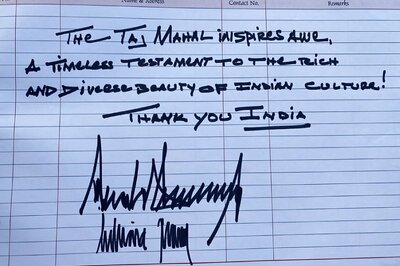 Name & Address Contact No. Remarks
THE TAJ MAHAL INSPIRES AWE,
A TIMELESS TESTAMENT TO THE RICH
AND DIVERSE BEAUTY OF INDIAN CULTURE!
THANK YOU INDIA